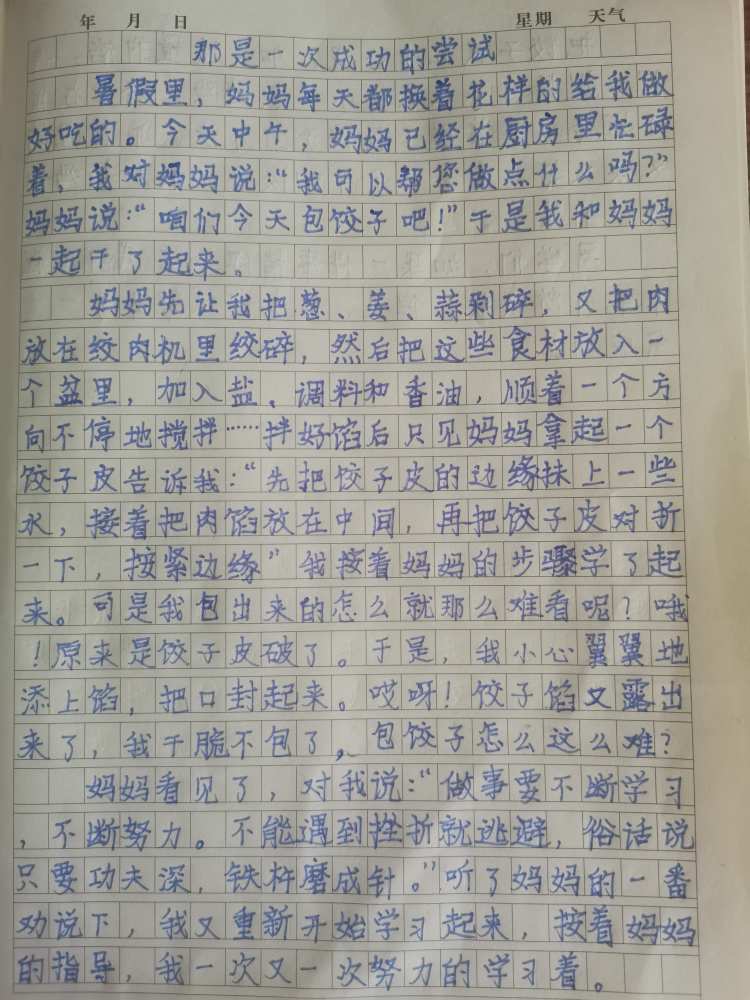 年 月 日 星期 天气
那是一次成功的尝试
暑假里，妈妈每天都换着花样的给我做
好吃的。今天中午，妈妈已经在厨房里忙碌
着，我对妈妈说：“我可以帮您做点什么吗？”
妈妈说：“咱们今天包饺子吧！”于是我和妈妈
一起干了起来。
妈妈先让我把葱、姜、蒜剁碎，又把肉
放在绞肉机里绞碎，然后把这些食材放入一
个盆里，加入盐、调料和香油，顺着一个方
向不停地搅拌……拌好馅后只见妈妈拿起一个
饺子皮告诉我：“先把饺子皮的边缘抹上一些
水，接着把肉馅放在中间，再把饺子皮对折
一下，按紧边缘”我按着妈妈的步骤学了起
来。可是我包出来的怎么就那么难看呢？哦
！原来是饺子皮破了。于是，我小心翼翼地
添上馅，把口封起来。哎呀！饺子馅又露出
来了，我干脆不包了，包饺子怎么这么难？
妈妈看见了，对我说：“做事要不断学习
，不断努力。不能遇到挫折就逃避，俗话说
只要功夫深，铁杵磨成针。”听了妈妈的一番
劝说下，我又重新开始学习起来，按着妈妈
的指导，我一次又一次努力的学习着。